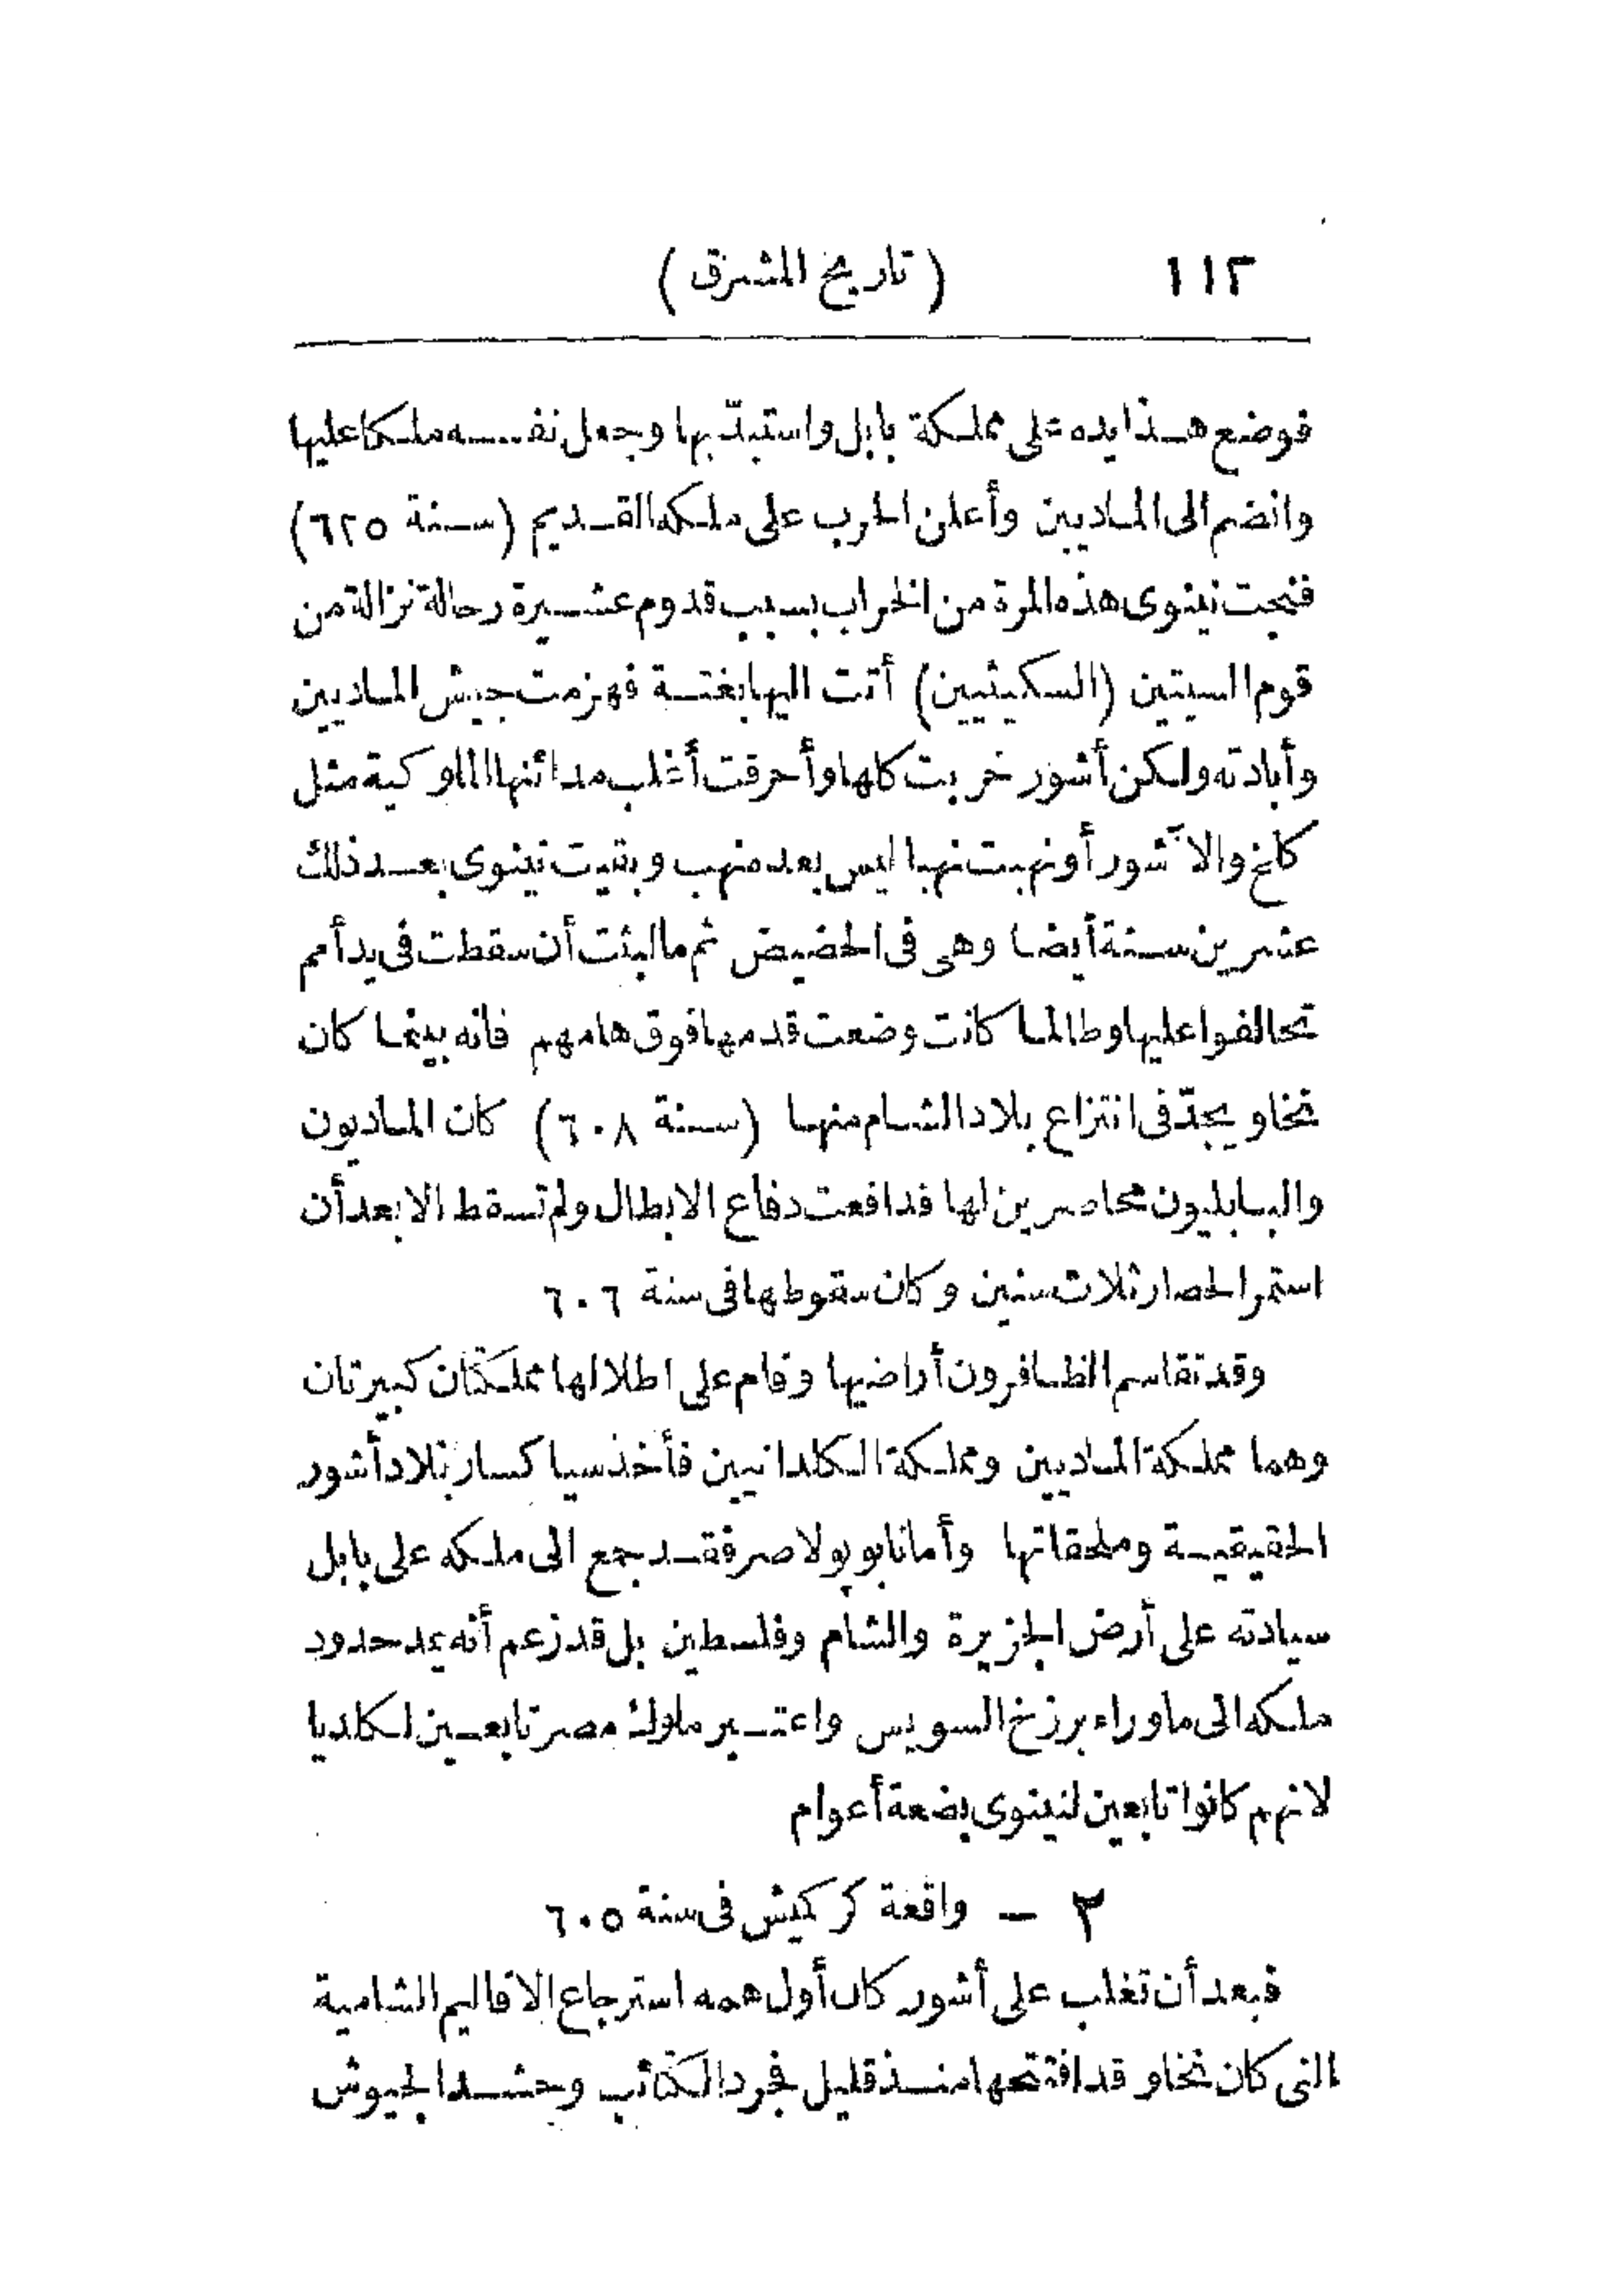 ١١٢ ( تاريخ المشرق )
فوضع هذا يده على مملكة بابل واستبدّ بها وجعل نفسه ملكا عليها
وانضم الى الماديين وأعلن الحرب على ملكه القديم (سنة ٦٢٥)
فنجت نينوى هذه المرة من الخراب بسبب قدوم عشيرة رحالة نزالة من
قوم السيتين (السكيثيين) أتت اليها بغتة فهزمت جيش الماديين
وأبادته ولكن أشور خربت كلها وأحرقت أغلب مدائنها الملوكية مثل
كلخ والآشور أو نهبت نهبا ليس بعده نهب وبقيت نينوى بعد ذلك
عشرين سنة أيضا وهى فى الحضيض ثم ما لبثت أن سقطت فى يد أمم
تحالفوا عليها وطالما كانت وضعت قدمها فوق هامهم فانه بينما كان
نخاو يجدّ فى انتزاع بلاد الشام منها (سنة ٦٠٨) كان الماديون
والبابليون محاصرين لها فدافعت دفاع الابطال ولم تسقط الا بعد أن
استمر الحصار ثلاث سنين وكان سقوطها فى سنة ٦٠٦
وقد تقاسم الظافرون أراضيها وقام على اطلالها مملكتان كبيرتان
وهما مملكة الماديين ومملكة الكلدانيين فأخذ سيا كسار بلاد أشور
الحقيقية وملحقاتها وأما نابو بولا صر فقد جمع الى ملكه على بابل
سيادته على أرض الجزيرة والشام وفلسطين بل قد زعم أنه يمد حدود
ملكه الى ما وراء برزخ السويس واعتبر ملوك مصر تابعين لكلديا
لانهم كانوا تابعين لنينوى بضعة أعوام
٣ – واقعة كركميش فى سنة ٦٠٥
فبعد أن تغلب على أشور كان أول همه استرجاع الاقاليم الشامية
التى كان نخاو قد افتتحها منذ قليل فجرد الكتائب وحشد الجيوش